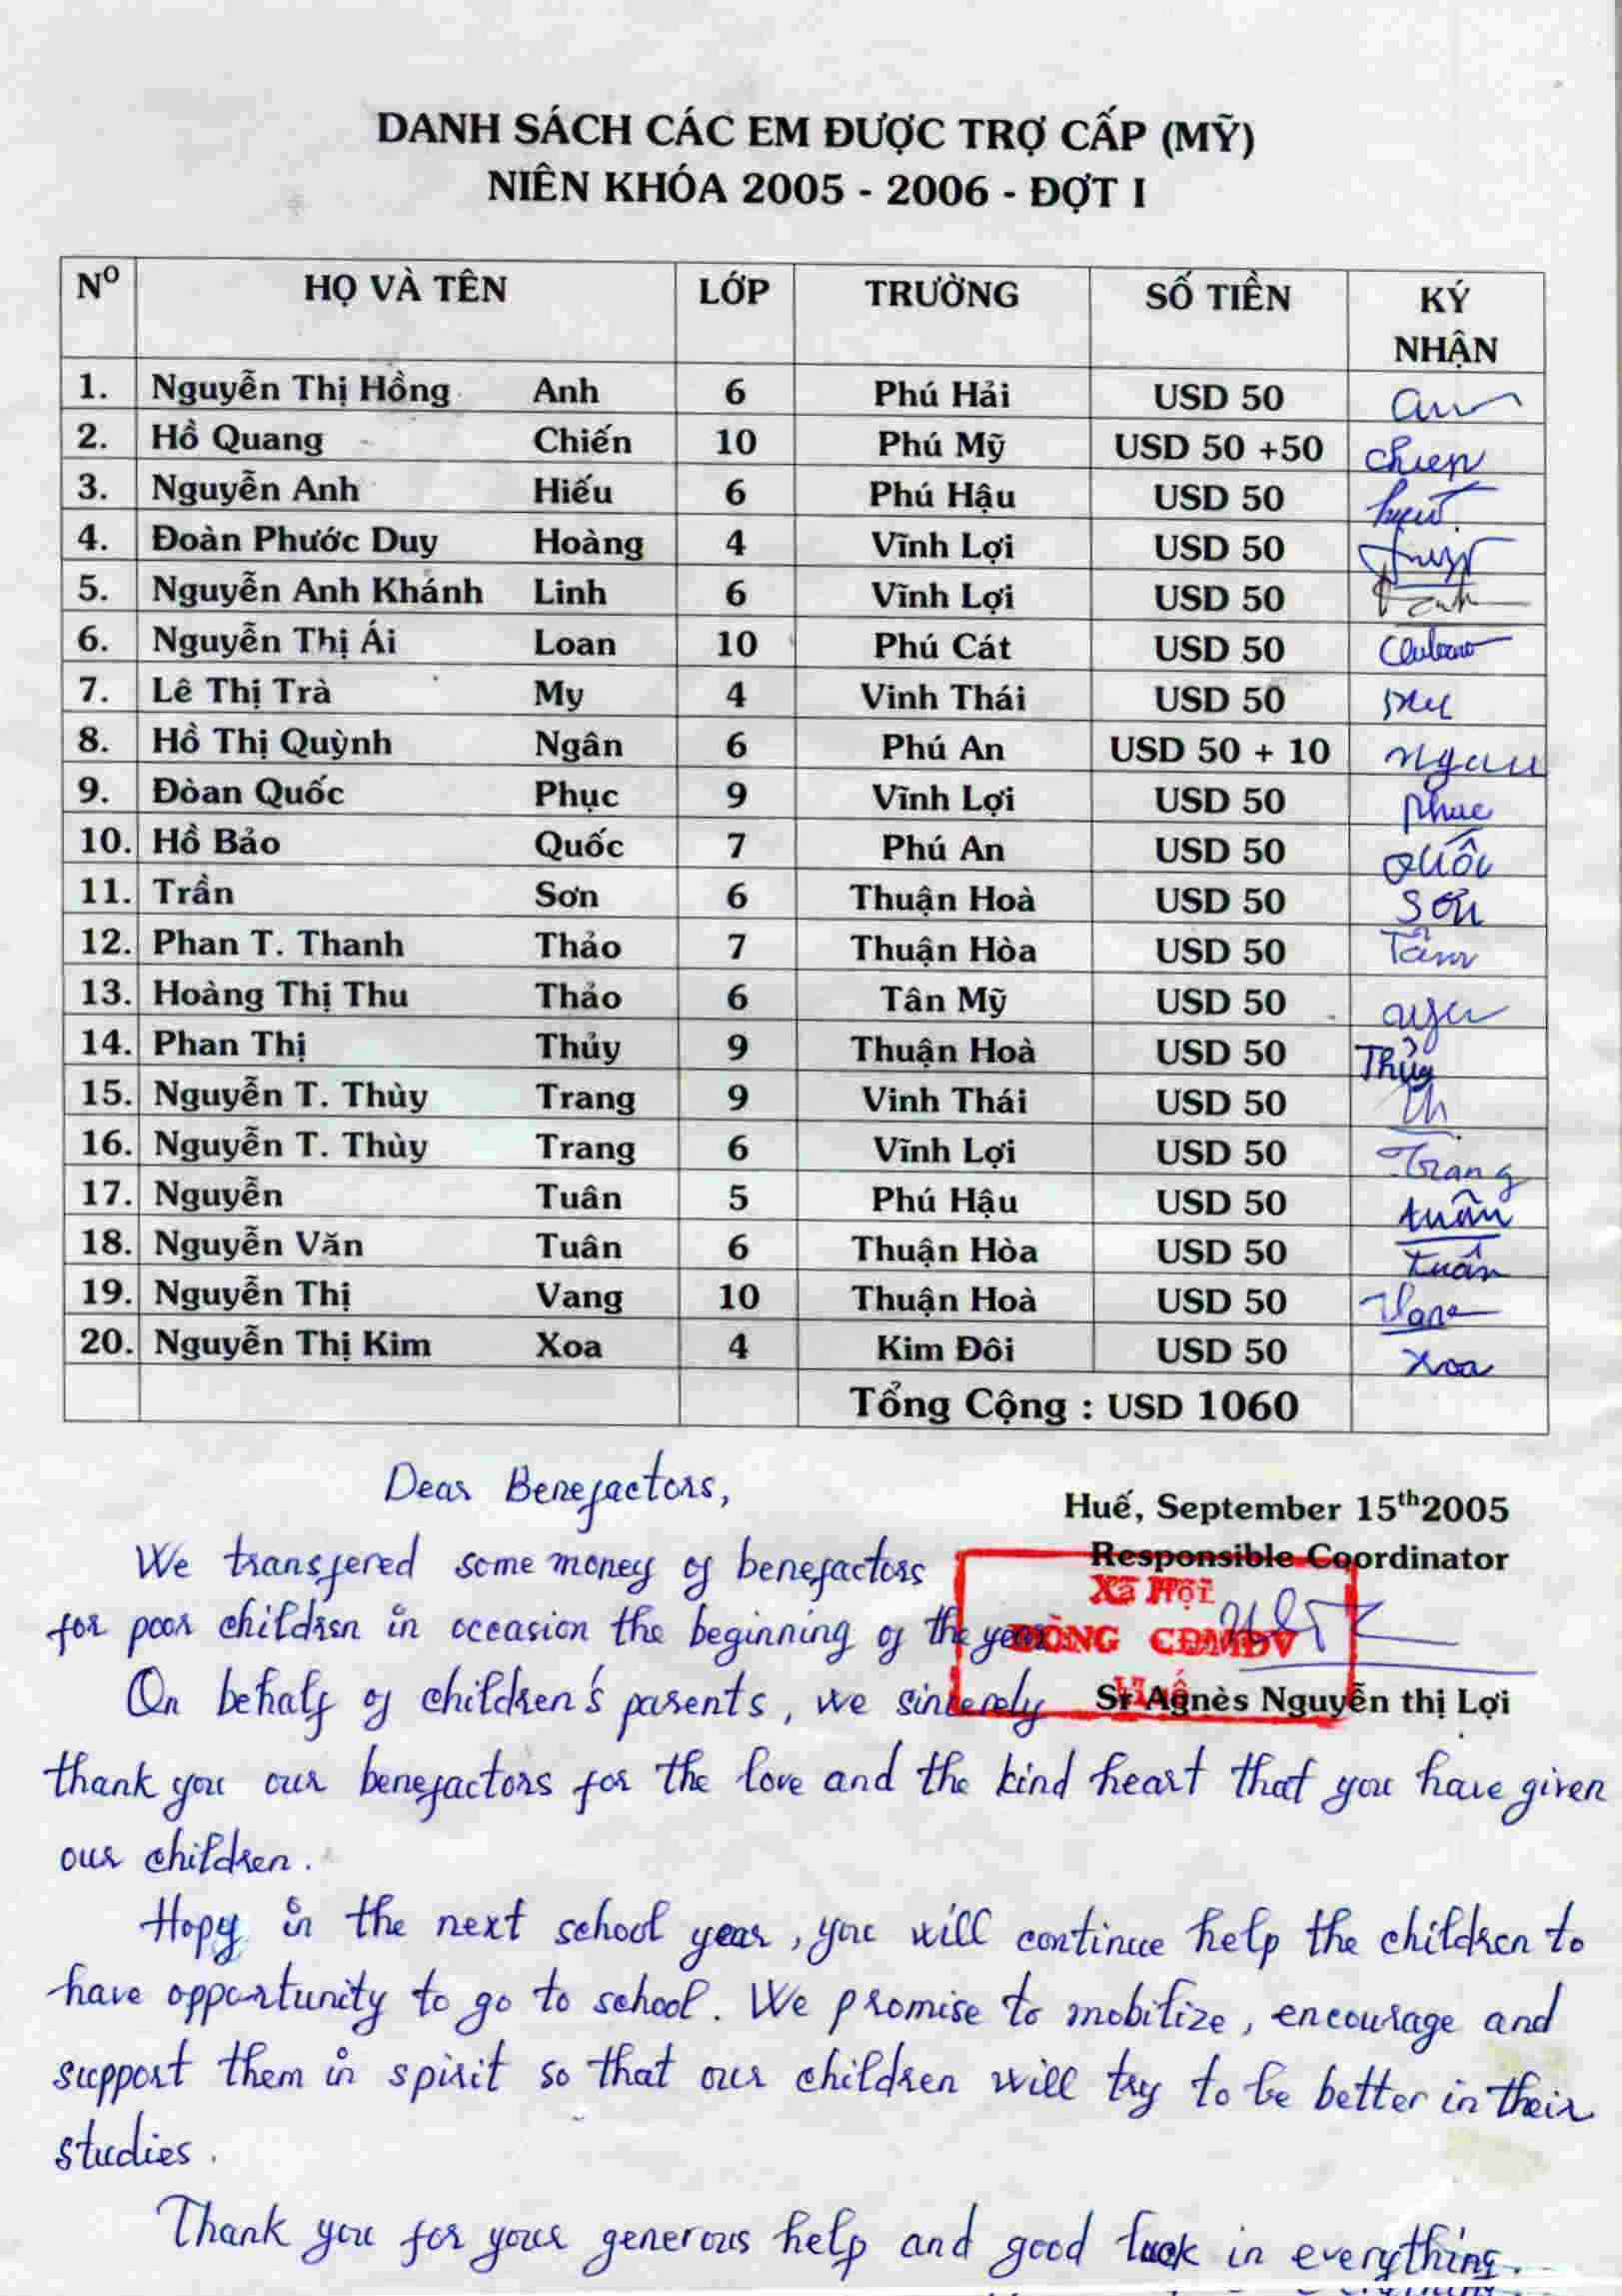 DANH SÁCH CÁC EM ĐƯỢC TRỢ CẤP (MỸ)
NIÊN KHÓA 2005 - 2006 - ĐỢT I
Nº HỌ VÀ TÊN LỚP TRƯỜNG SỐ TIỀN KÝ NHẬN
1. Nguyễn Thị Hồng Anh 6 Phú Hải USD 50
2. Hồ Quang Chiến 10 Phú Mỹ USD 50 +50
3. Nguyễn Anh Hiếu 6 Phú Hậu USD 50
4. Đoàn Phước Duy Hoàng 4 Vĩnh Lợi USD 50
5. Nguyễn Anh Khánh Linh 6 Vĩnh Lợi USD 50
6. Nguyễn Thị Ái Loan 10 Phú Cát USD 50
7. Lê Thị Trà My 4 Vinh Thái USD 50
8. Hồ Thị Quỳnh Ngân 6 Phú An USD 50 + 10 ngau
9. Đòan Quốc Phục 9 Vĩnh Lợi USD 50 Phuc
10. Hồ Bảo Quốc 7 Phú An USD 50 Quốc
11. Trần Sơn 6 Thuận Hoà USD 50 Sơn
12. Phan T. Thanh Thảo 7 Thuận Hòa USD 50 Tâm
13. Hoàng Thị Thu Thảo 6 Tân Mỹ USD 50
14. Phan Thị Thủy 9 Thuận Hoà USD 50 Thủy
15. Nguyễn T. Thùy Trang 9 Vinh Thái USD 50 Th
16. Nguyễn T. Thùy Trang 6 Vĩnh Lợi USD 50 Trang
17. Nguyễn Tuân 5 Phú Hậu USD 50 tuân
18. Nguyễn Văn Tuân 6 Thuận Hòa USD 50 tuấn
19. Nguyễn Thị Vang 10 Thuận Hoà USD 50 Vang
20. Nguyễn Thị Kim Xoa 4 Kim Đôi USD 50 Xoa
Tổng Cộng : USD 1060
Huế, September 15th2005
Responsible Coordinator
Xã Hội
DÒNG CĐMĐV
Huế
Sr Agnès Nguyễn thị Lợi
Dear Benefactors,
We transfered some money of benefactors
for poor children in occasion the beginning of the year
On behalf of children's parents, we sincerely
thank you our benefactors for the love and the kind heart that you have given
our children.
Hopy in the next school year, you will continue help the children to
have opportunity to go to school. We promise to mobilize, encourage and
support them in spirit so that our children will try to be better in their
studies.
Thank you for your generous help and good luck in everything.